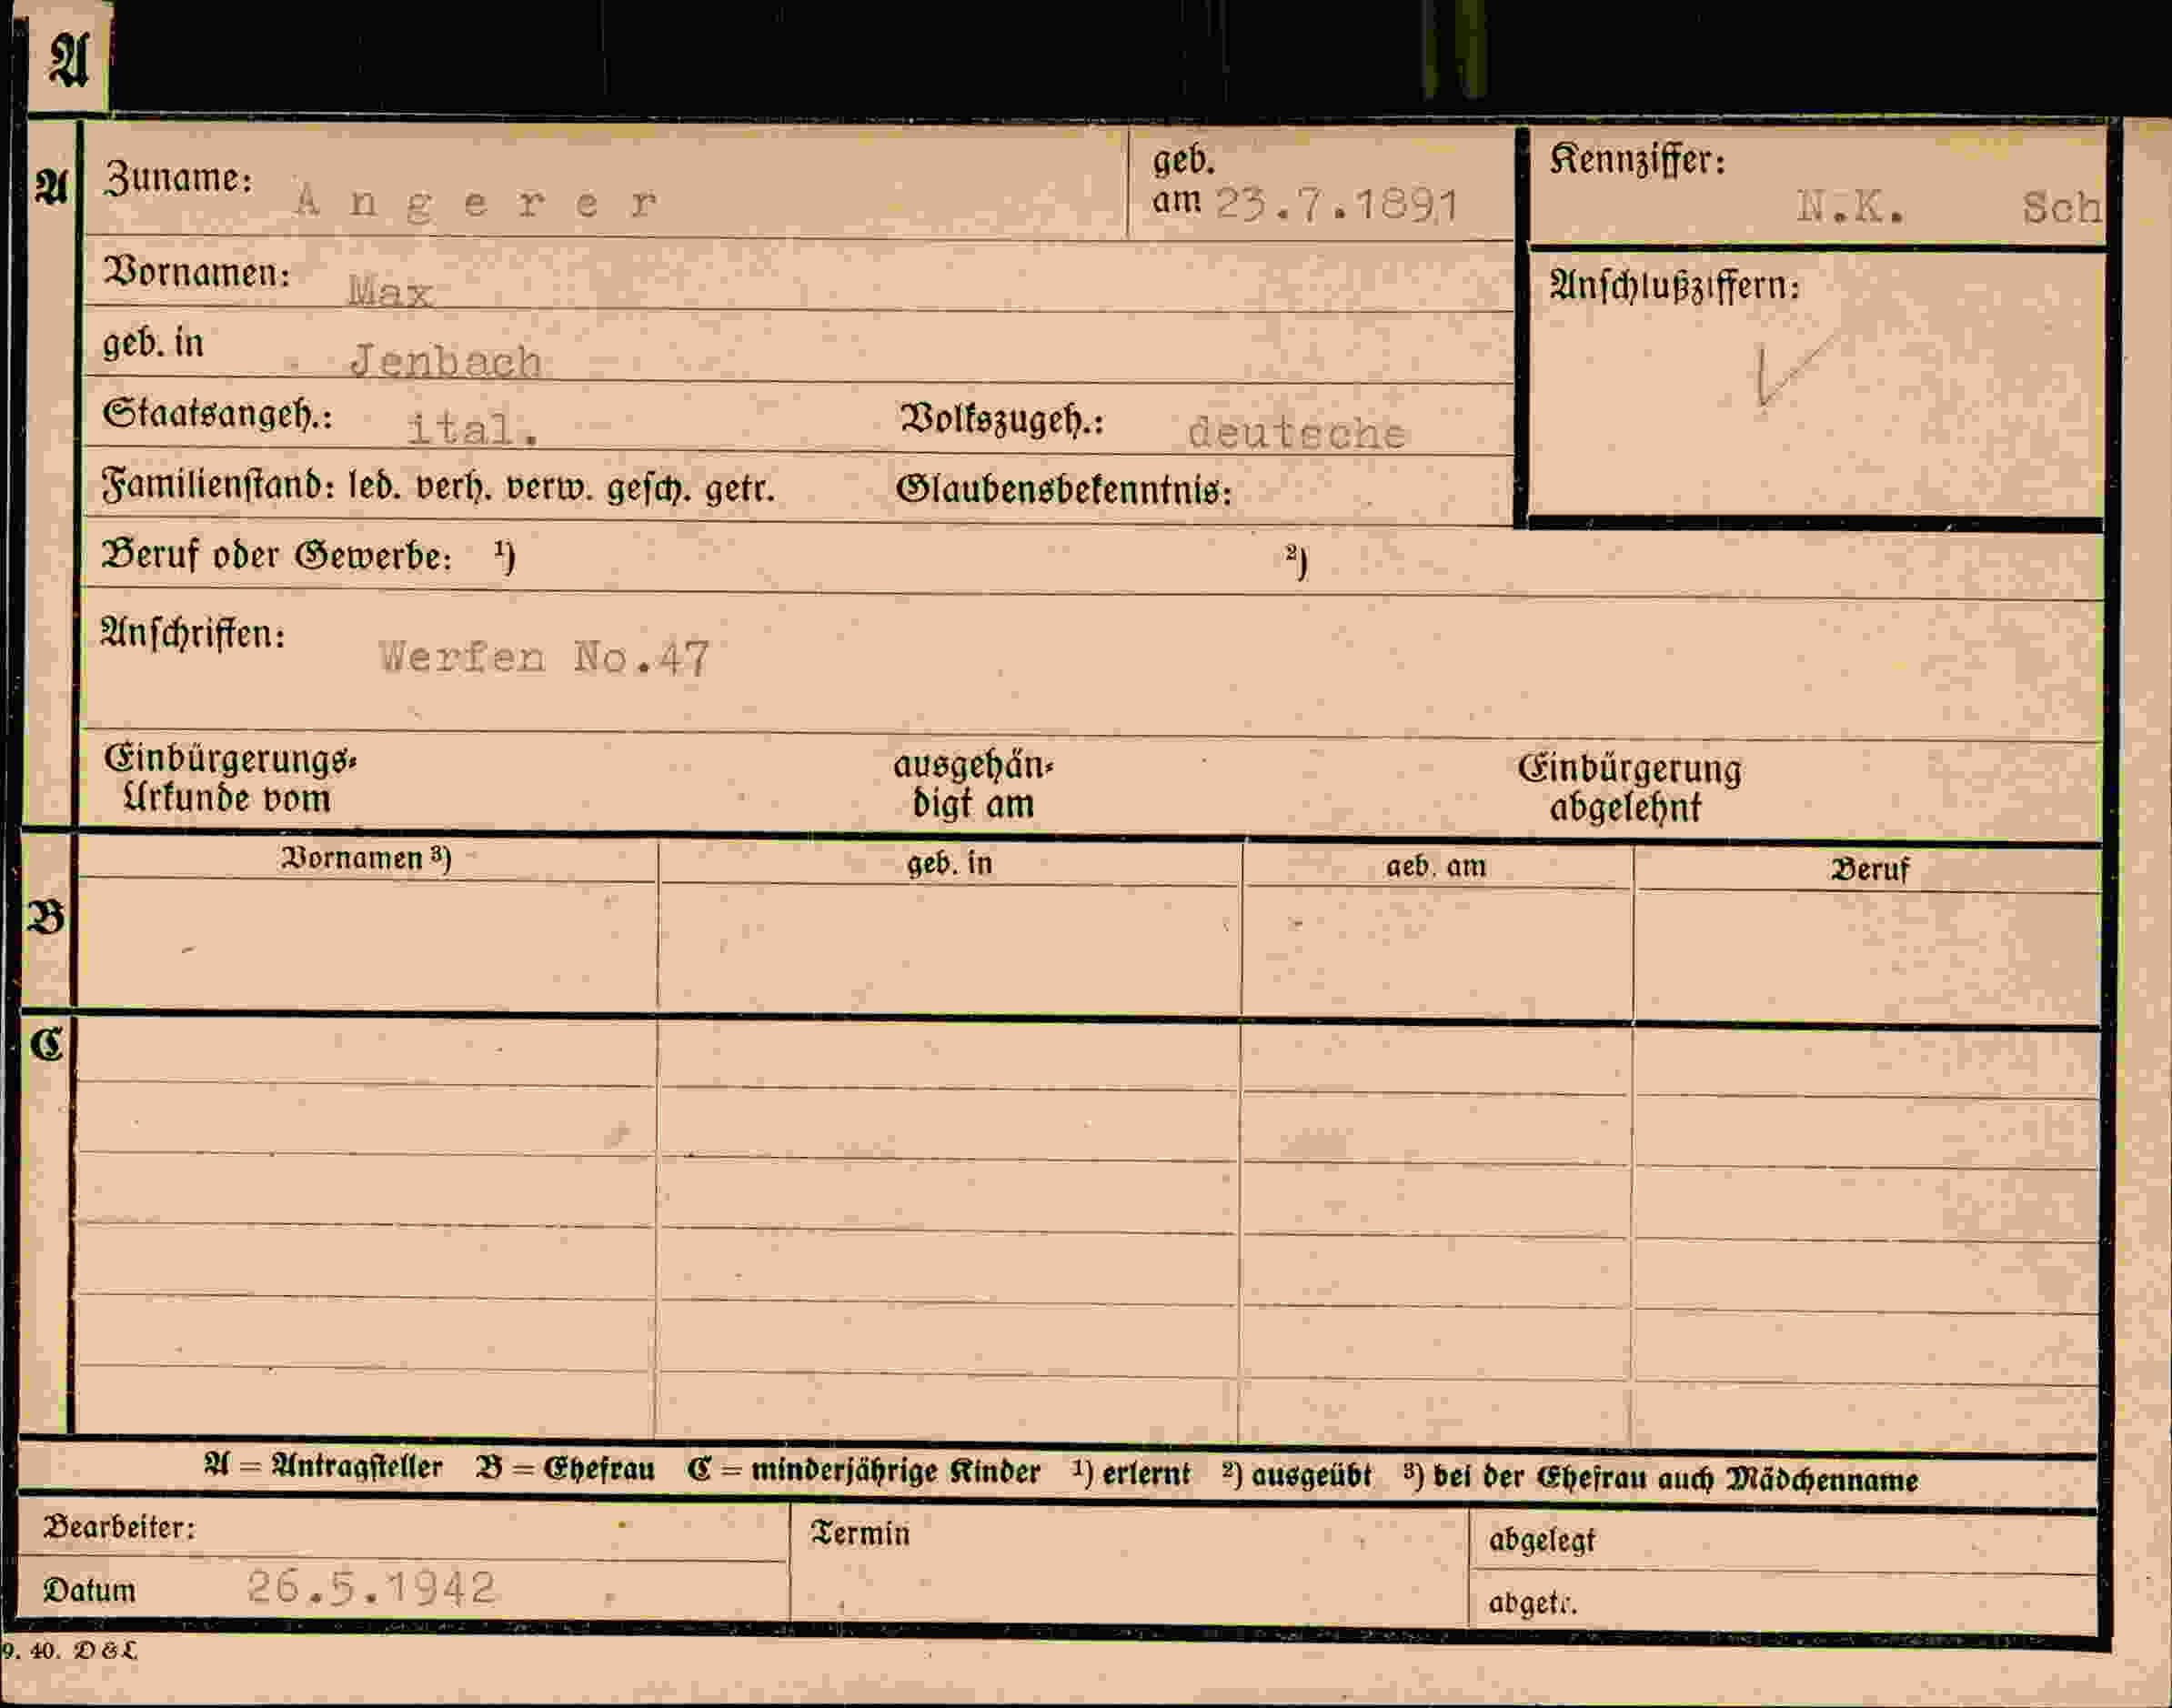 A
A
Zuname: Angerer
geb. am 23.7.1891
Kennziffer: N.K. Sch
Vornamen: Max
Anschlußziffern:
geb. in Jenbach
Staatsangeh.: ital. Volkszugeh.: deutsche
Familienstand: led. verh. verw. gesch. getr. Glaubensbekenntnis:
Beruf oder Gewerbe: ¹) ²)
Anschriften: Werfen No.47
Einbürgerungs- ausgehän- Einbürgerung
Urkunde vom digt am abgelehnt
Vornamen ³) geb. in geb. am Beruf
B
C
A = Antragsteller B = Ehefrau C = minderjährige Kinder ¹) erlernt ²) ausgeübt ³) bei der Ehefrau auch Mädchenname
Bearbeiter: Termin abgelegt
Datum 26.5.1942 abgetr.
9. 40. D & L